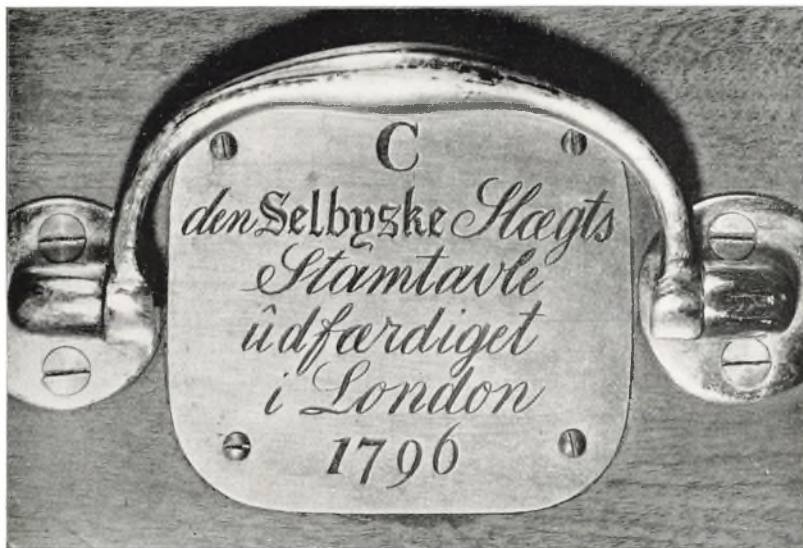 C
den Selbyske Slægts
Stamtavle
ûdfærdiget
i London
1796